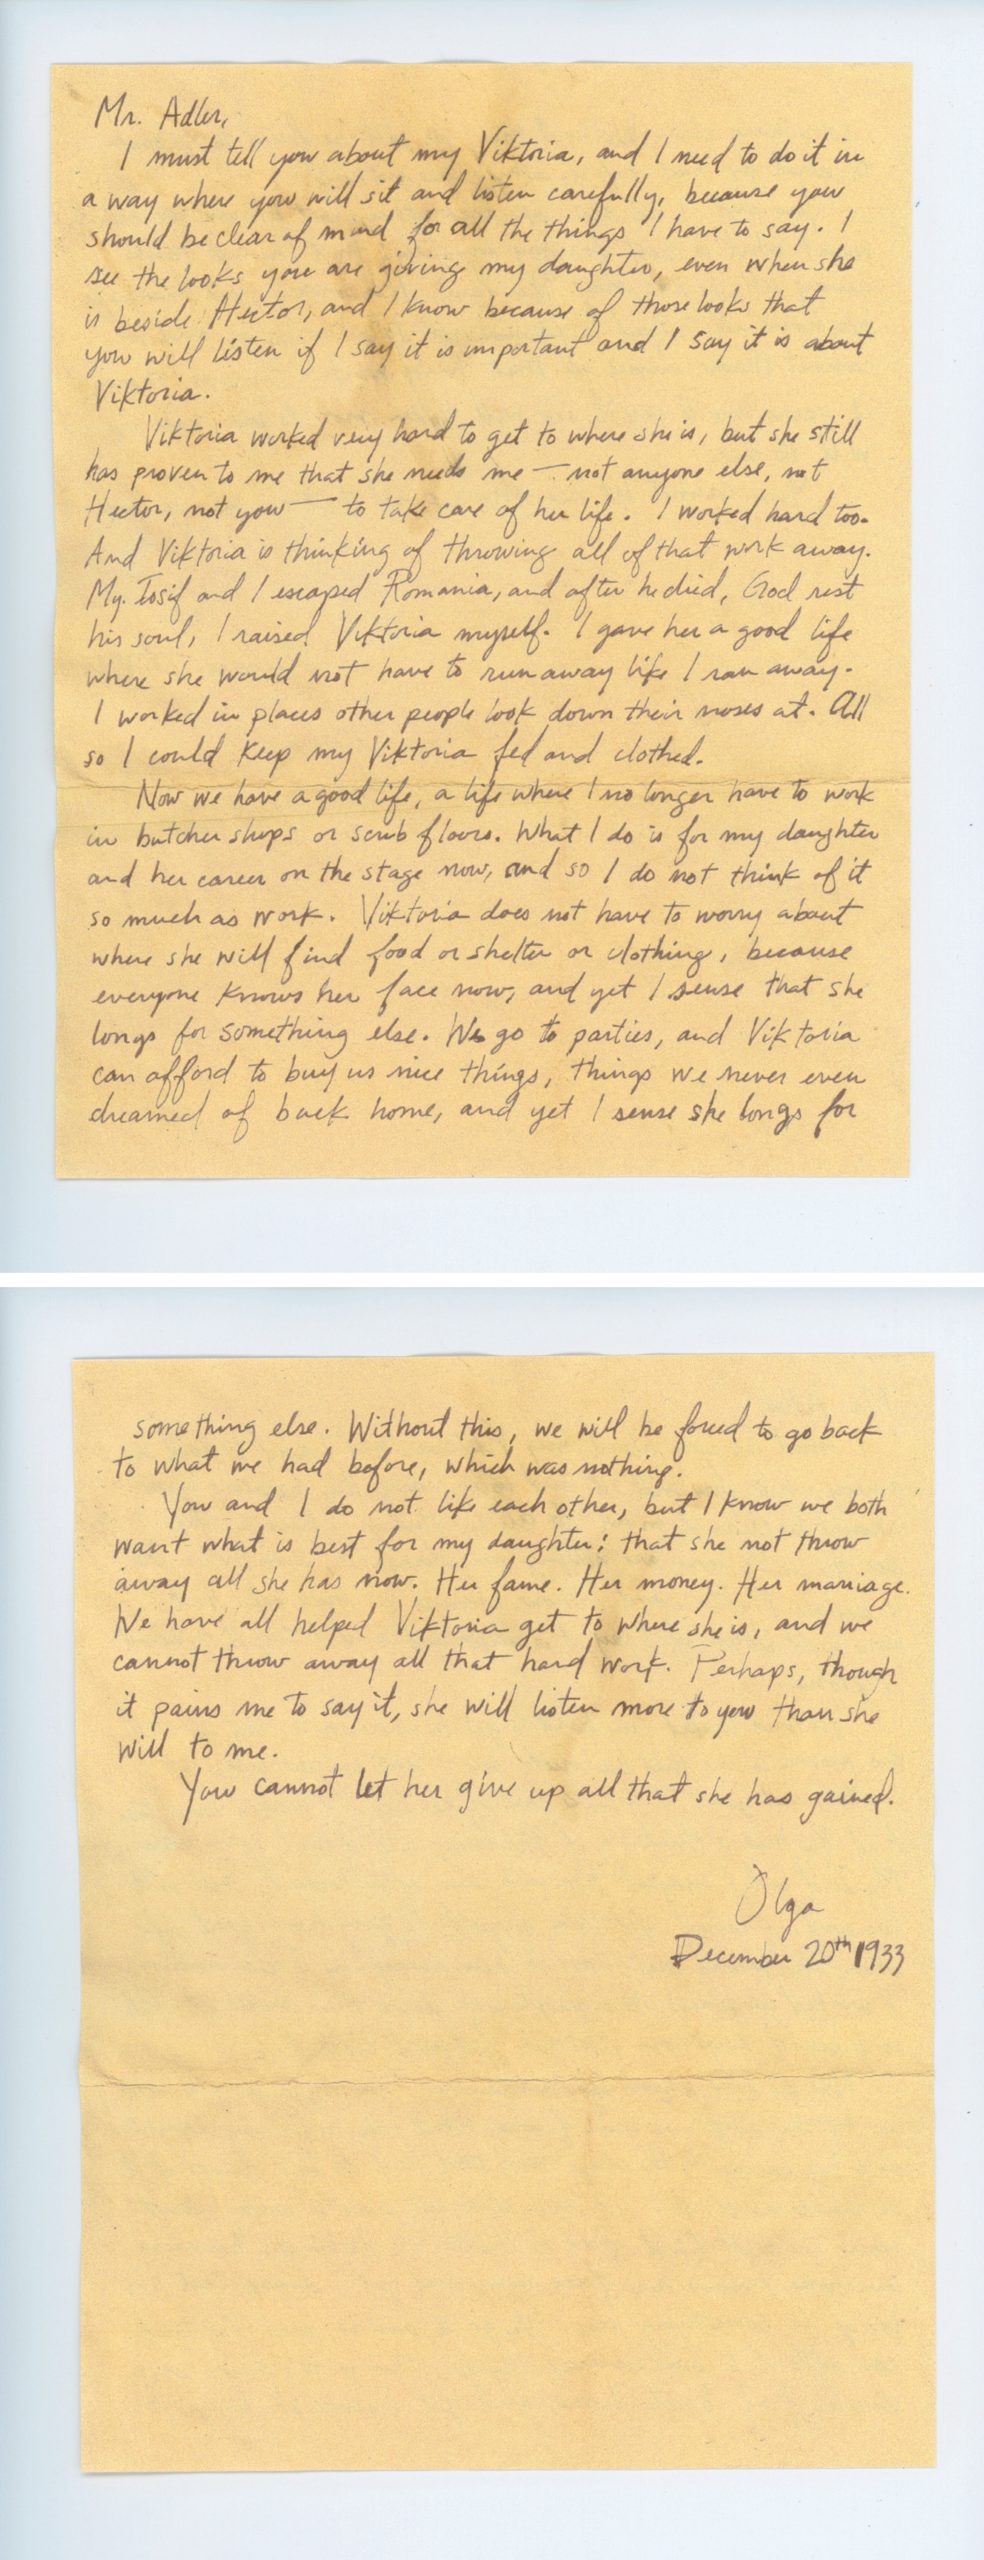 Mr. Adler,
I must tell you about my Viktoria, and I need to do it in
a way where you will sit and listen carefully, because you
should be clear of mind for all the things I have to say. I
see the looks you are giving my daughter, even when she
is beside Hector, and I know because of those looks that
you will listen if I say it is important and I say it is about
Viktoria.
Viktoria worked very hard to get to where she is, but she still
has proven to me that she needs me — not anyone else, not
Hector, not you — to take care of her life. I worked hard too.
And Viktoria is thinking of throwing all of that work away.
My Iosif and I escaped Romania, and after he died, God rest
his soul, I raised Viktoria myself. I gave her a good life
where she would not have to run away like I ran away.
I worked in places other people look down their noses at. All
so I could keep my Viktoria fed and clothed.
Now we have a good life, a life where I no longer have to work
in butcher shops or scrub floors. What I do is for my daughter
and her career on the stage now, and so I do not think of it
so much as work. Viktoria does not have to worry about
where she will find food or shelter or clothing, because
everyone knows her face now, and yet I sense that she
longs for something else. We go to parties, and Viktoria
can afford to buy us nice things, things we never even
dreamed of back home, and yet I sense she longs for
something else. Without this, we will be forced to go back
to what we had before, which was nothing.
You and I do not like each other, but I know we both
want what is best for my daughter: that she not throw
away all she has now. Her fame. Her money. Her marriage.
We have all helped Viktoria get to where she is, and we
cannot throw away all that hard work. Perhaps, though
it pains me to say it, she will listen more to you than she
will to me.
You cannot let her give up all that she has gained.
Olga
December 20th 1933